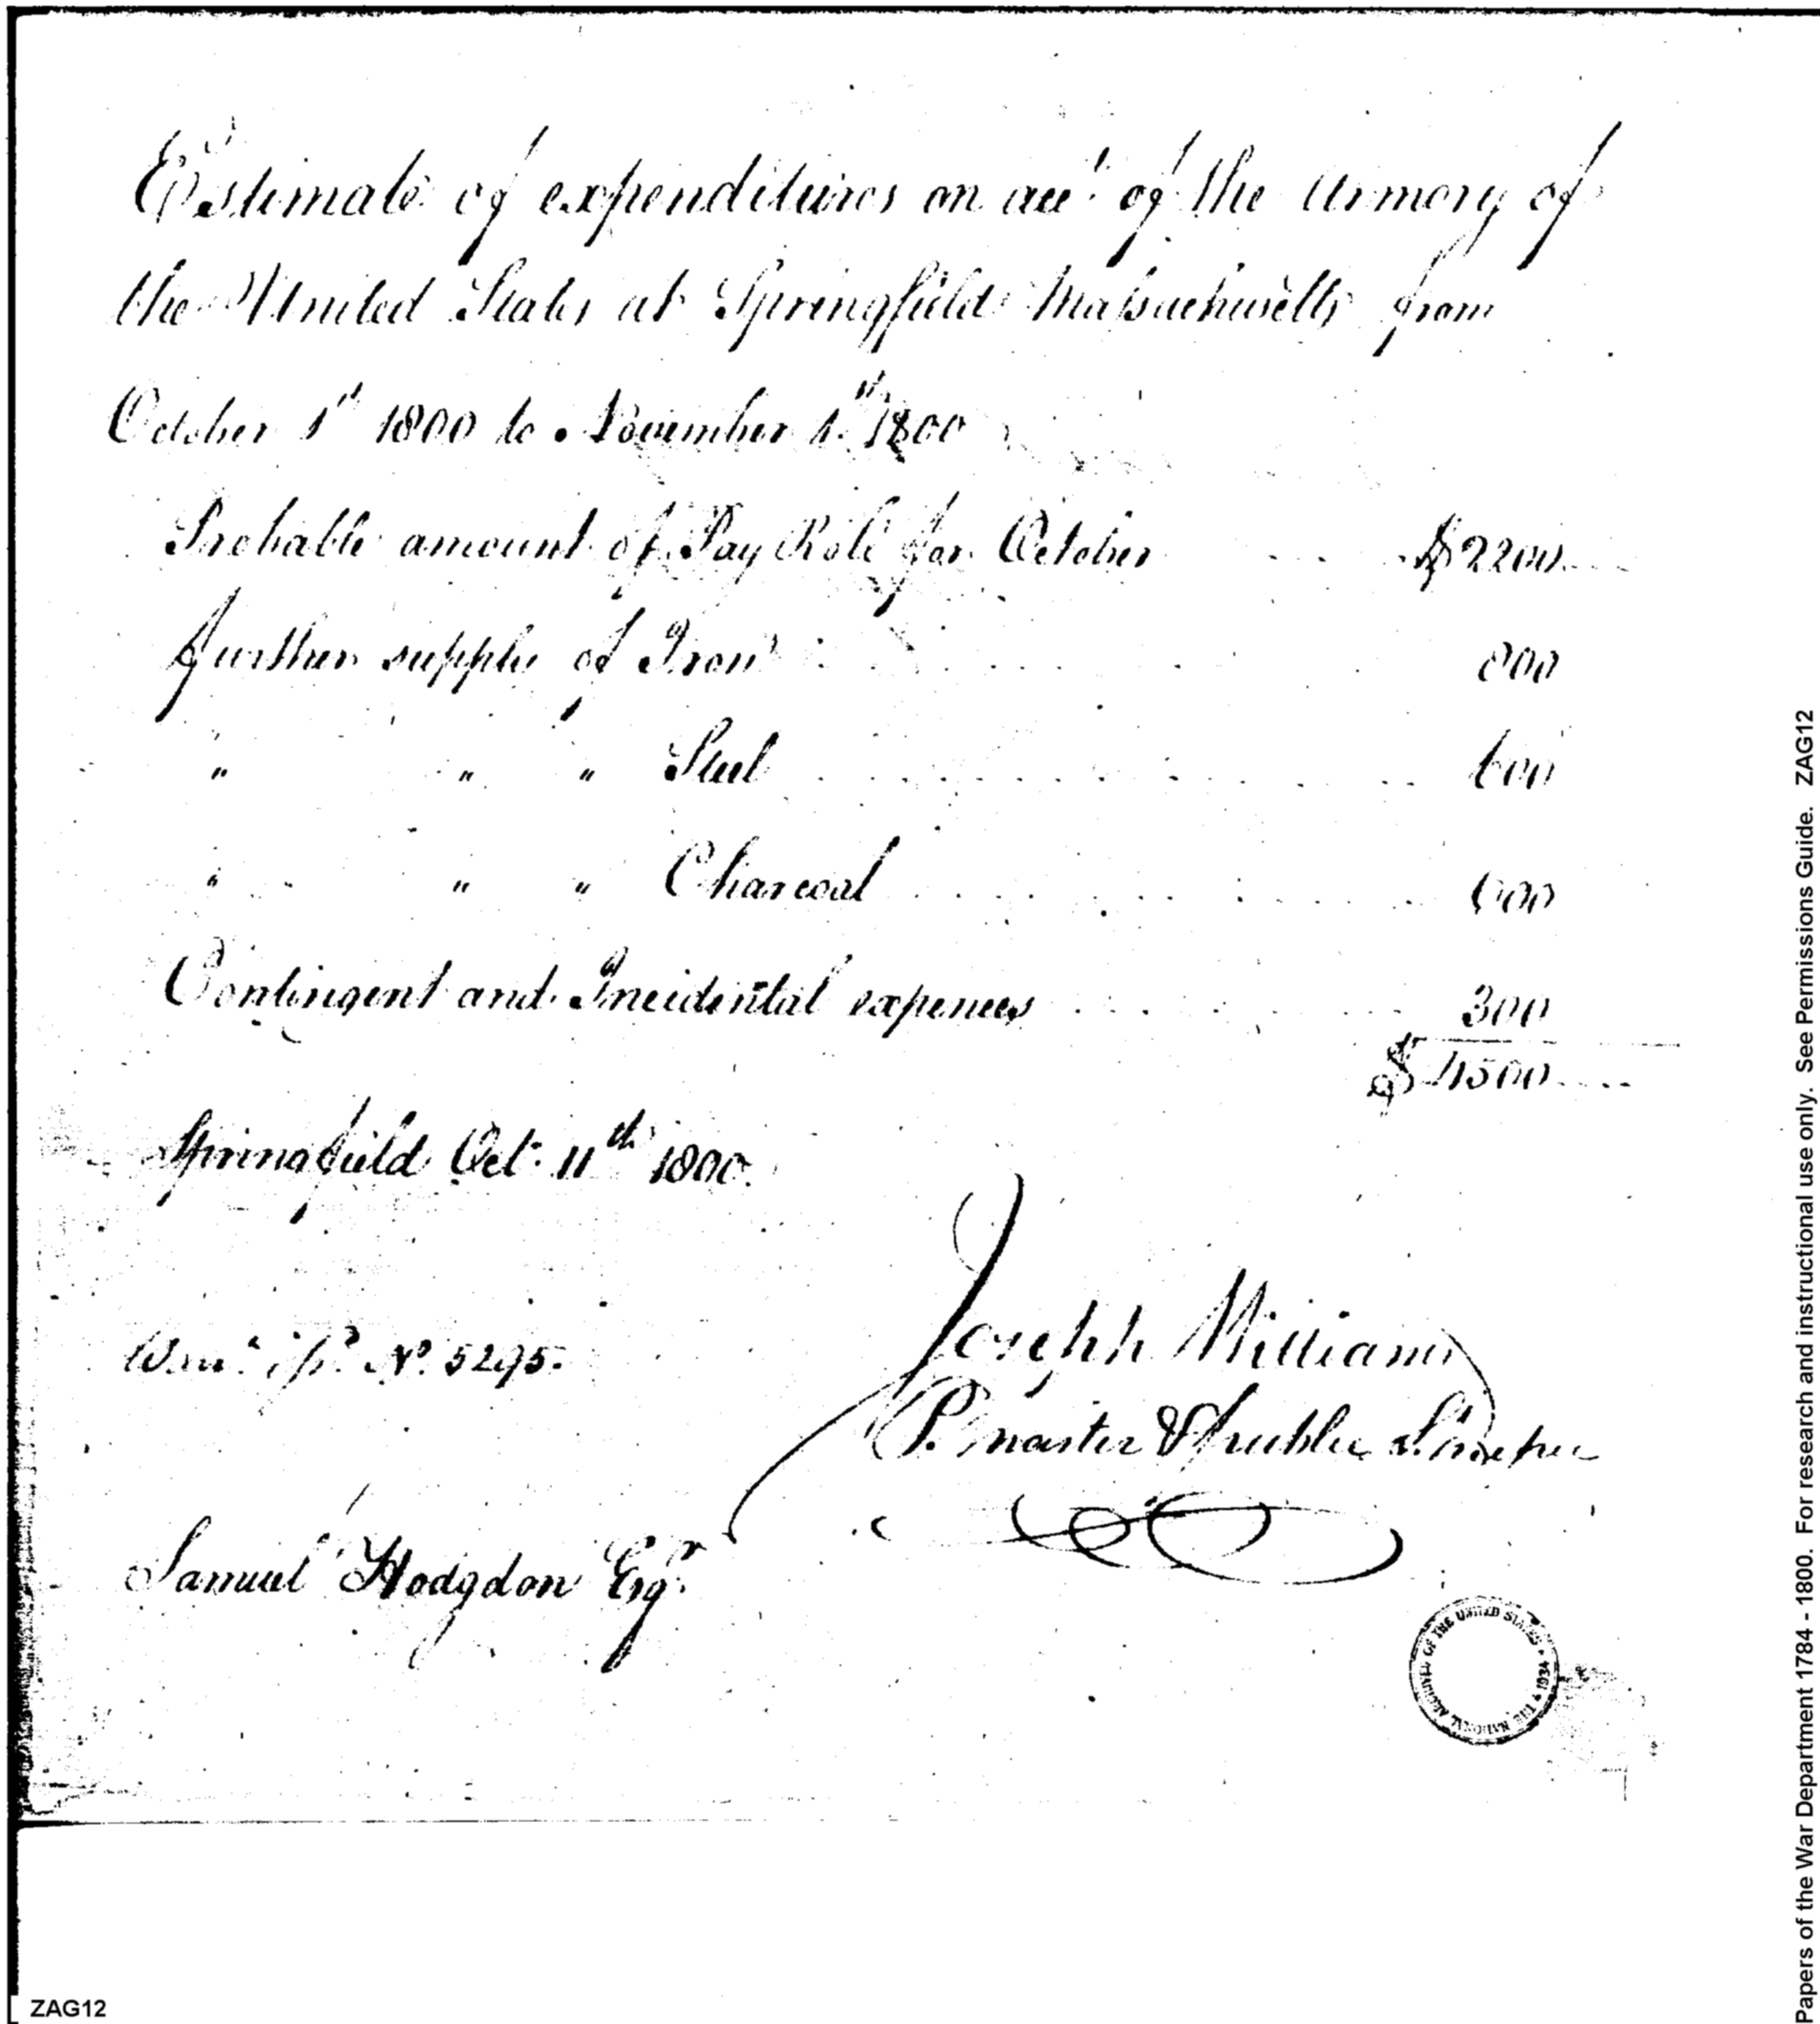 Estimate of expenditures on acct. of the Armory of
the United States at Springfield Massachusetts from
October 1st 1800 to November 1st 1800
Probable amount of Pay Roll for October $2200
further supply of Iron 800
" " " Steel 600
" " " Charcoal 600
Contingent and Incidental expences 300
$4500
Springfield Oct. 11th 1800.
No. 5295.
Joseph Williams
P. master & public Storekeeper
Samuel Hodgdon Esqr.
THE NATIONAL ARCHIVES OF THE UNITED STATES * 1934 *
ZAG12
Papers of the War Department 1784 - 1800. For research and instructional use only. See Permissions Guide. ZAG12